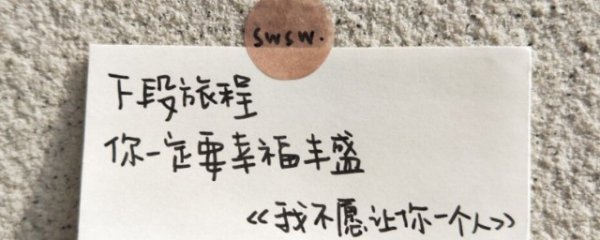 swsw.
下段旅程
你一定要幸福丰盛
《我不愿让你一个人》